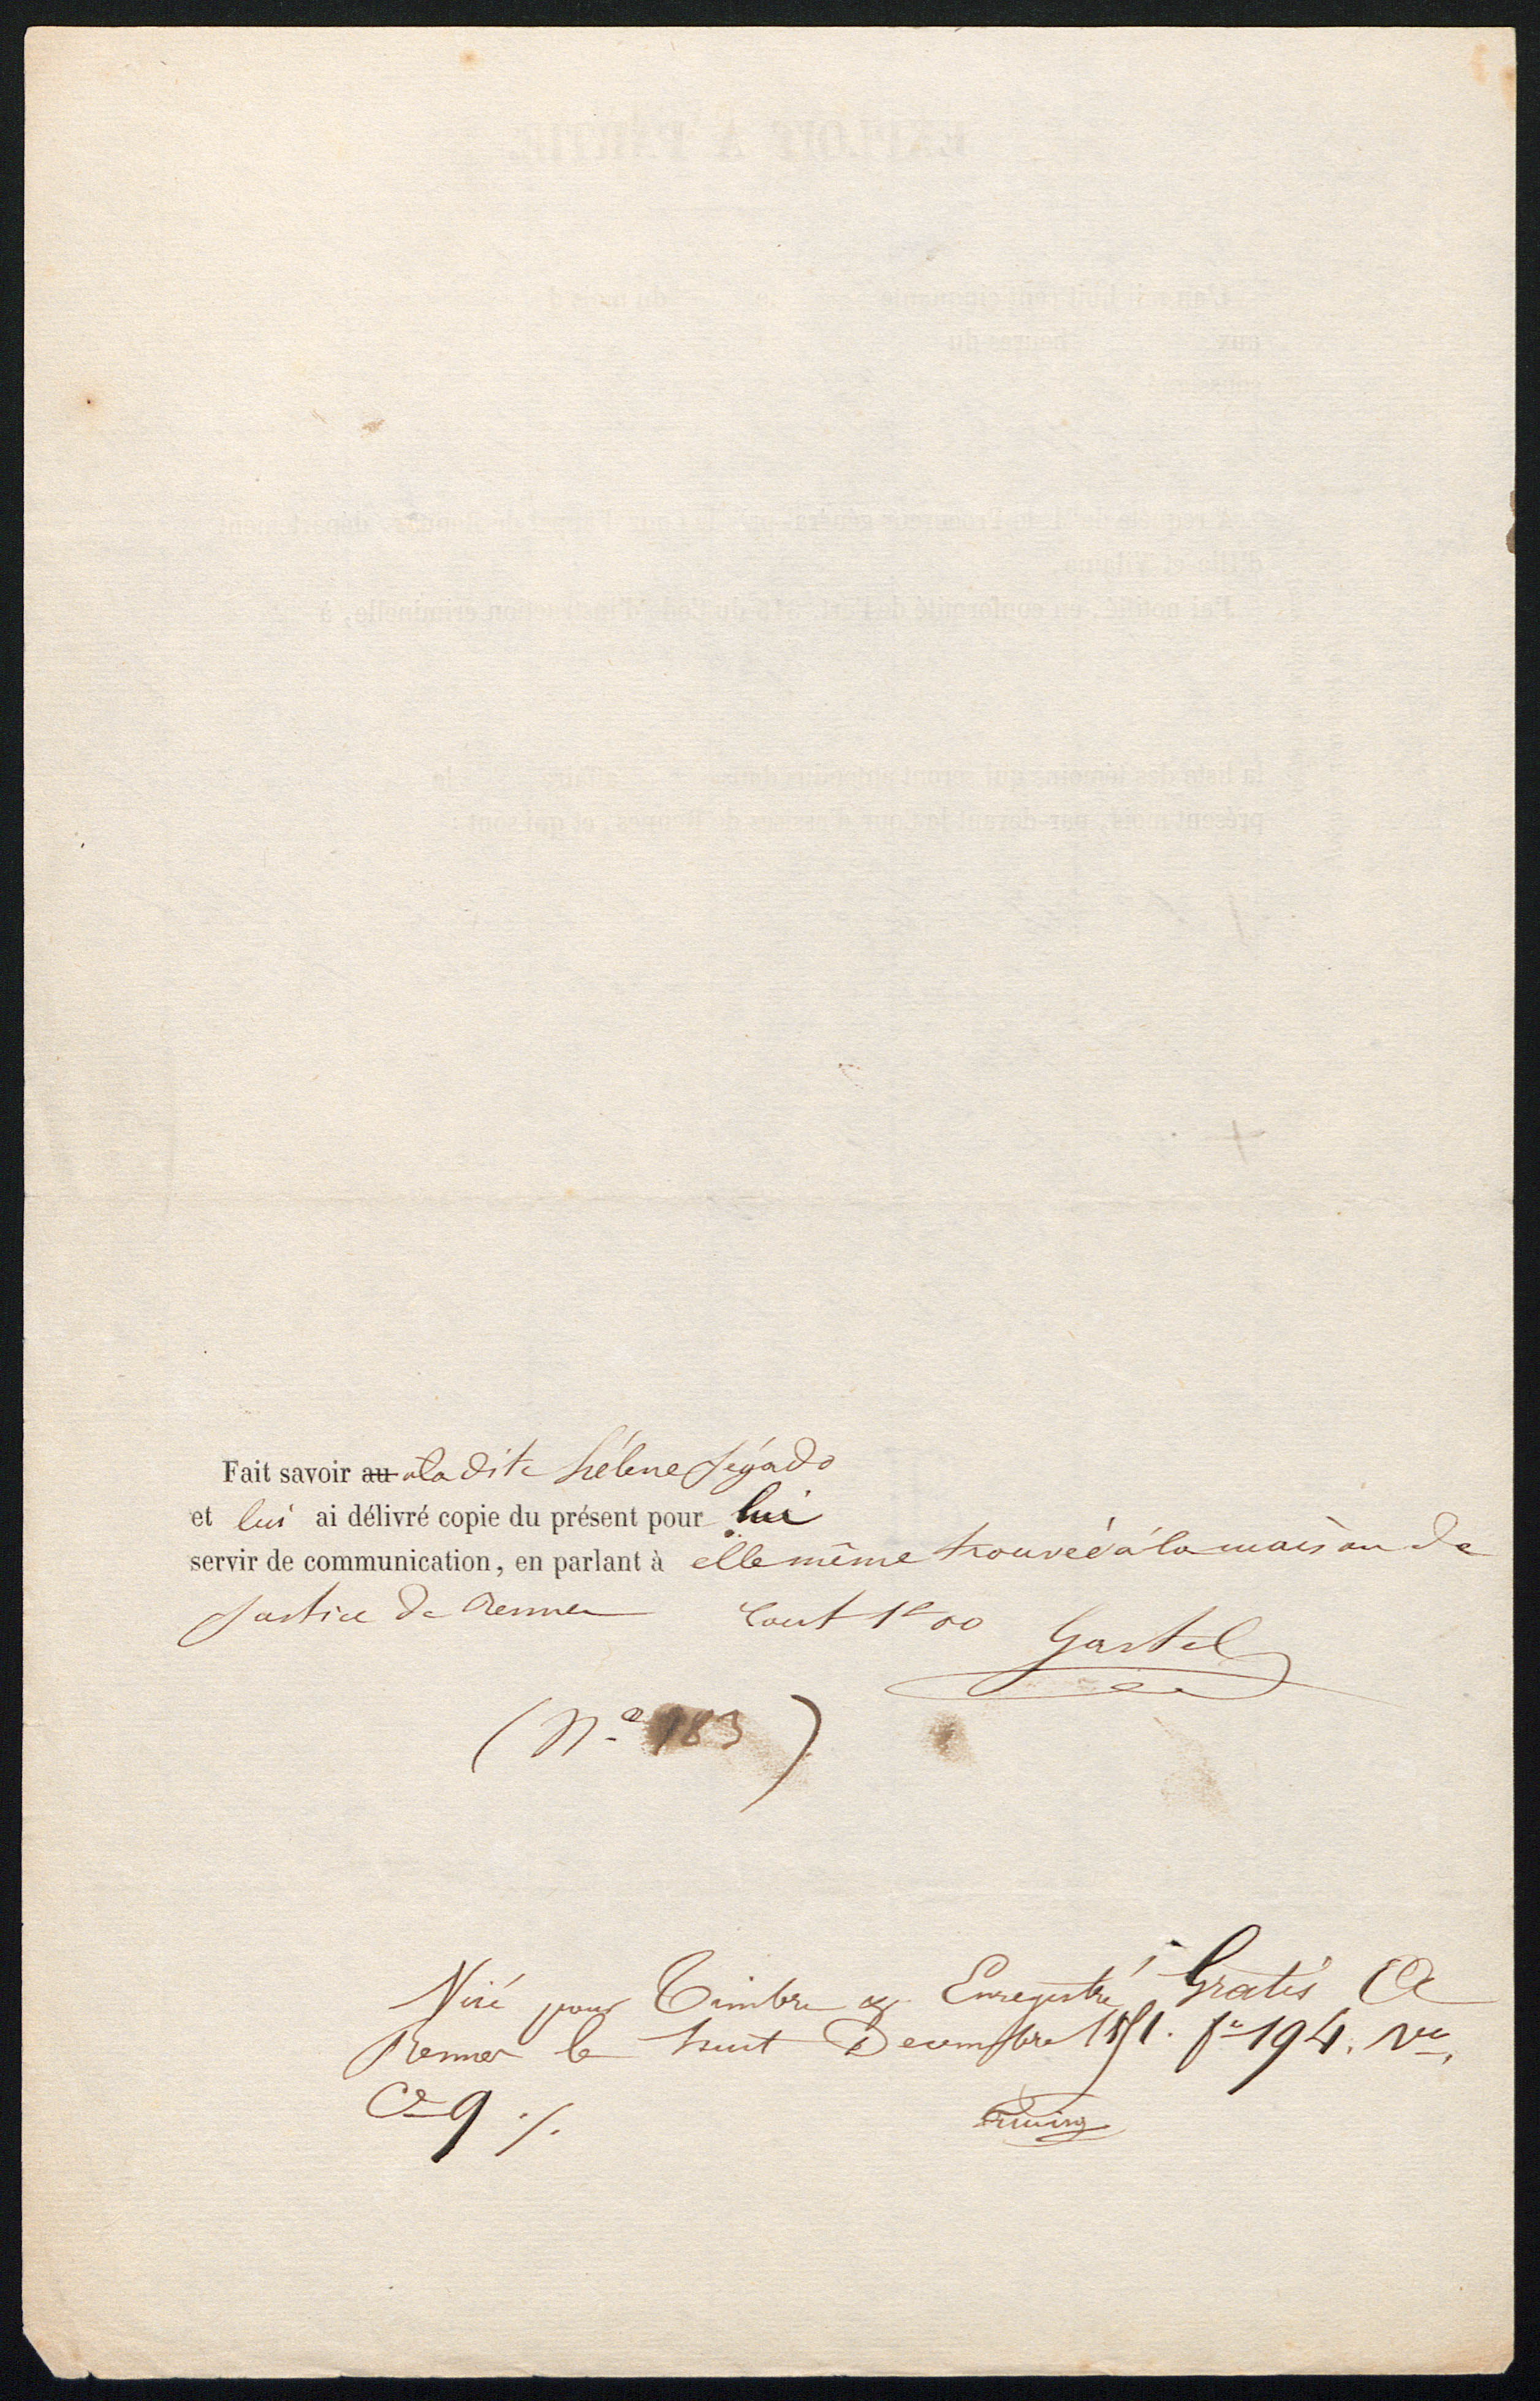 Fait savoir au à la dite hélène Jégado
et lui ai délivré copie du présent pour lui
servir de communication, en parlant à elle même trouvée à la maison de
Justice de Rennes Cout 1f 00 Gastel
(No 183)
Visé pour Timbre & Enregistré Gratis A
Rennes le huit Decembre 1851. fo 194. Vo,
Ce 9 ./.